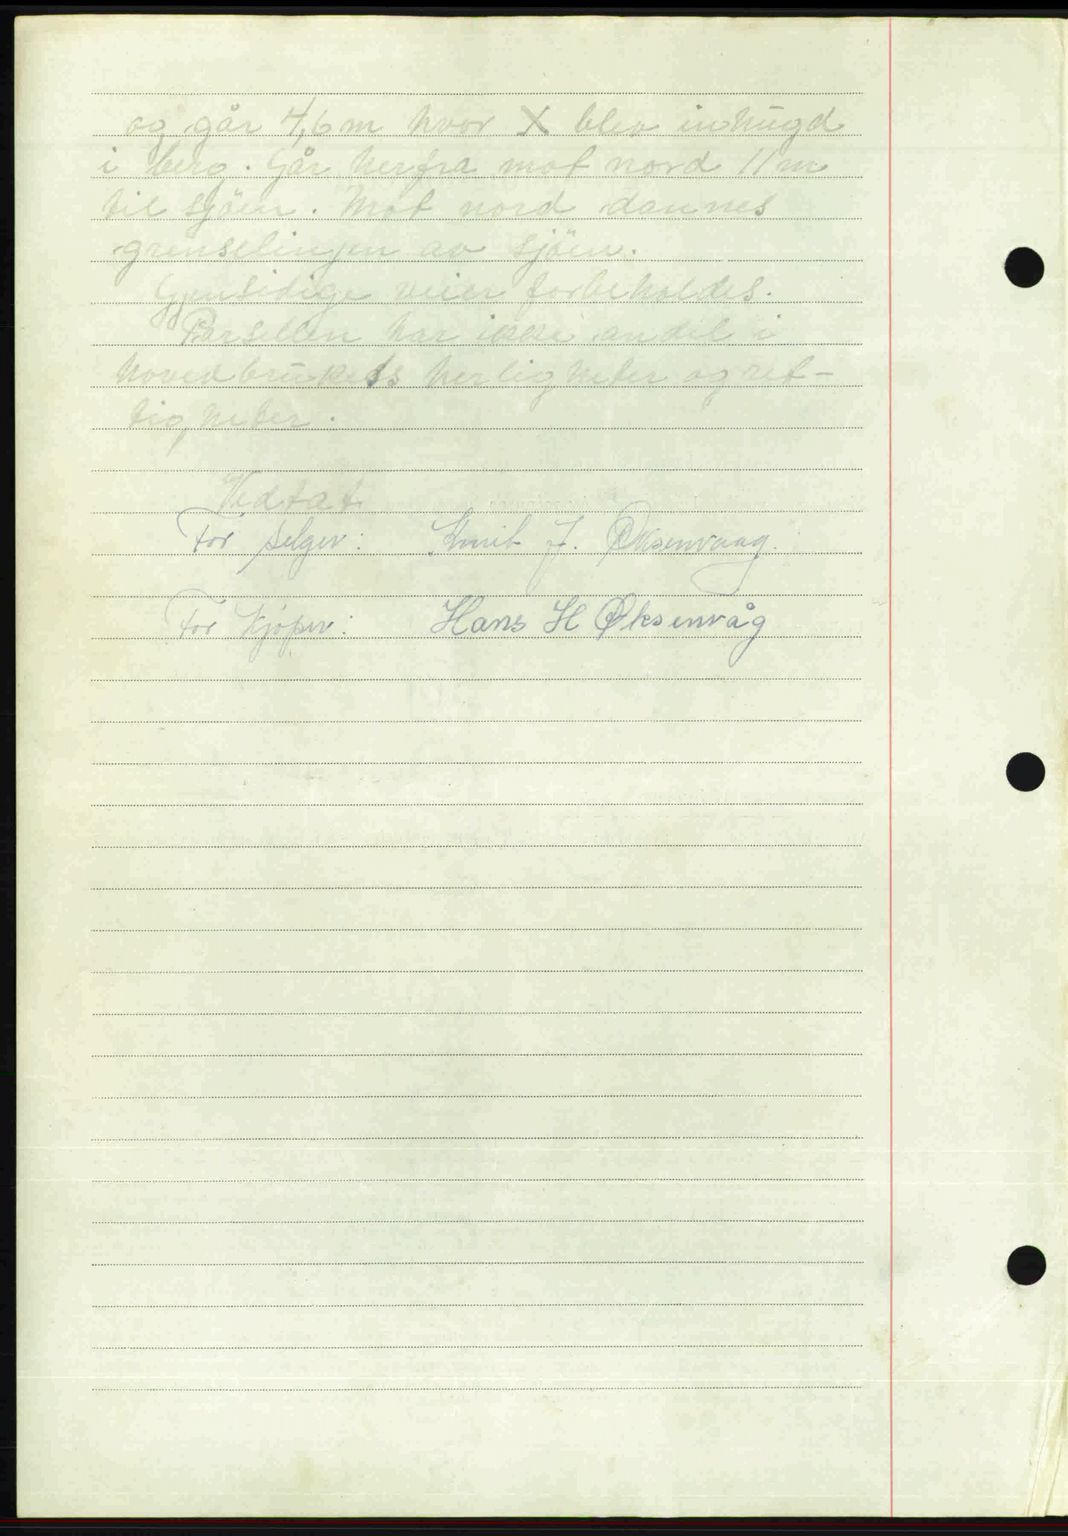 og går 4,6 m hvor X blev inhugd
i berg. Går herfra mot nord 11 m
til sjöen. Mot nord dannes
grenselinjen av sjöen.
Gjensidige veier forbeholdes.
Parsellen har ikke andel i
hovedbrukets herligheter og ret-
tigheter.
Vedtat
For selger: Knut J. Øksenvaag.
For kjøper: Hans H Øksenvåg